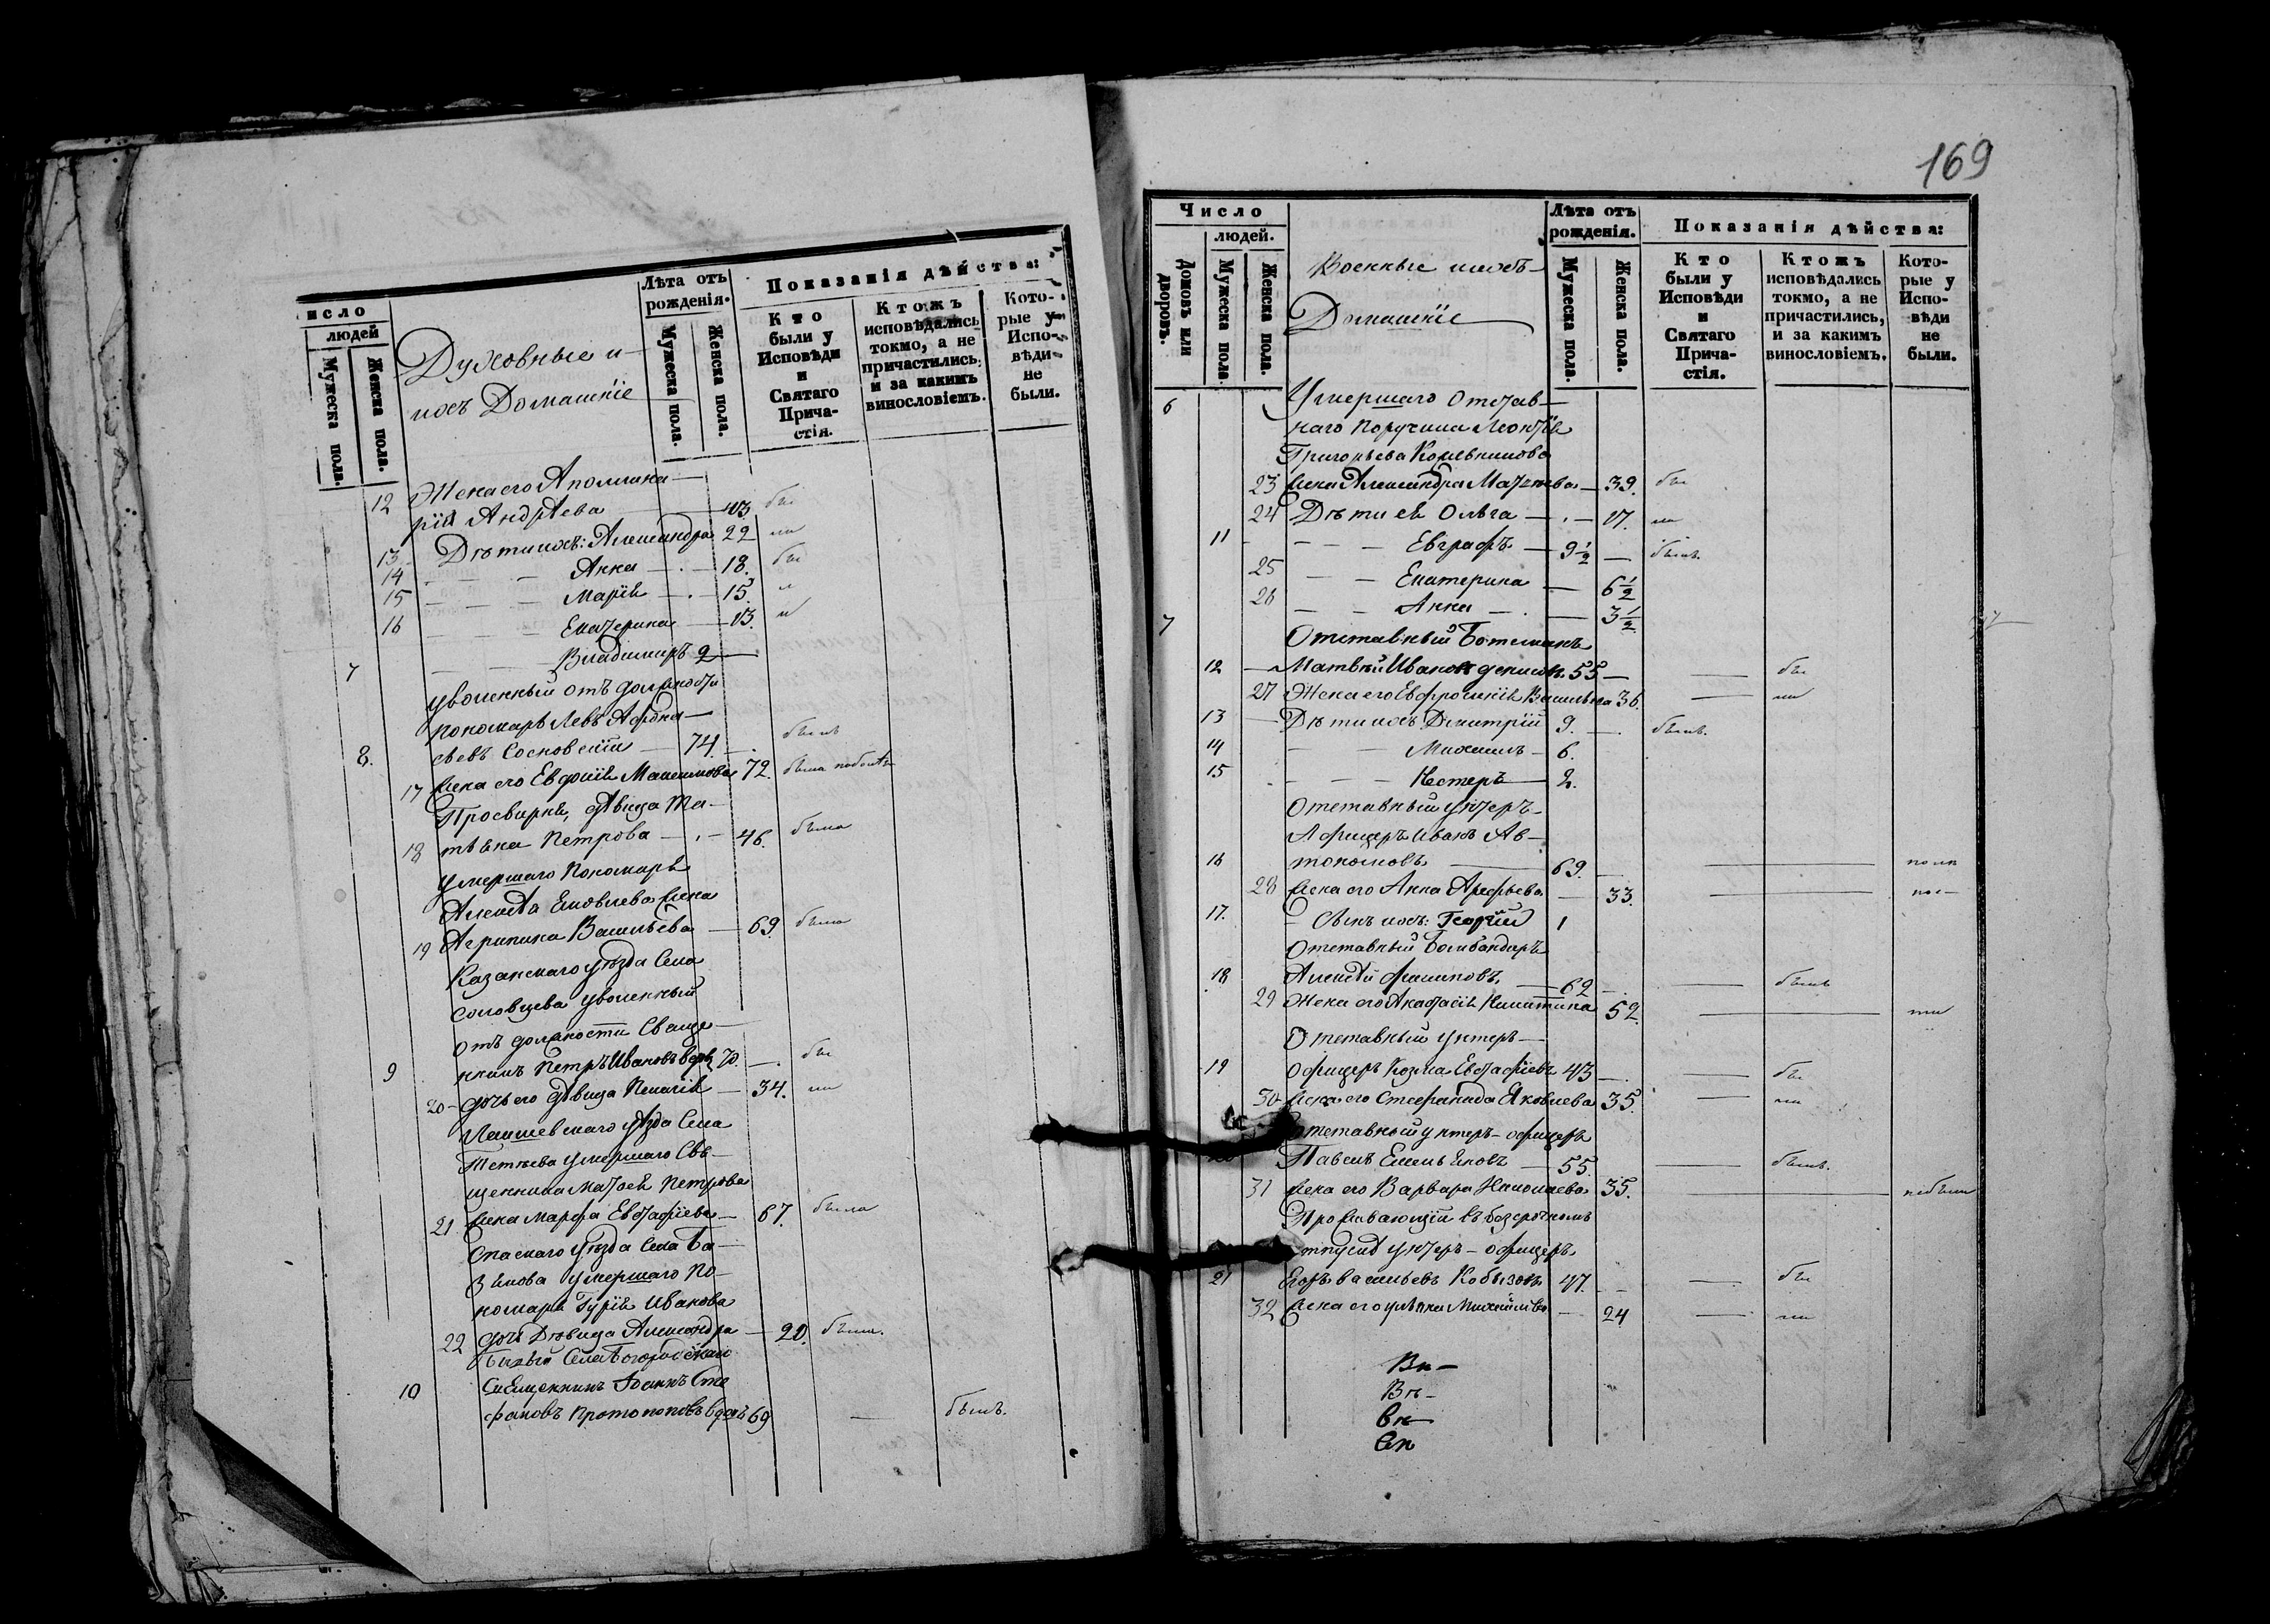 исло
людей
Мужеска пола.
Женска пола.
Духовные и
ихъ Домашніе
Лѣта отъ рожденія.
Мужеска пола.
Женска пола.
Показанія дѣйства:
Кто были у Исповѣди и Святаго Причастія.
Ктожъ исповѣдались токмо, а не причастились, и за какимъ винословіемъ.
Которые у Исповѣди не были.
12 Жена его Аполлина-
рія Андреева 43. бы
13 Дѣти ихъ: Александра 22 ли
14 Анна 18. бы
15 Марія 15. л
16 Екатерина 13. и
7 Владимиръ 2
уволенный отъ должности
пономарь Левъ Афона-
8. сьевъ Сосновскій 74. былъ
17 Жена его Евдокія Максимова 72. была
Просвирня, дѣвица Та-
18 тьяна Петрова 46. была
умершаго Пономаря
Алексѣя Яковлева жена
19 Агрипина Васильева 69. была
Казанскаго уѣзда Села
Соловцева уволенный
отъ должности Свяще-
9 нникъ Петръ Ивановъ вдовъ 70. бы
20 дочь его дѣвица Пелагія 34. ли
Лаишевскаго уѣзда Села
Тетѣева умершаго Свя-
щенника Матоея Петрова
21 жена Марфа Евстафіева 67. была
Спаскаго уѣзда Села Ба-
умершаго По-
номаря Гурія Иванова
22 дочь Дѣвица Александра 20. была.
Села Богородскаго
10 Священникъ Іоаннъ Сте
фановъ Протопоповъ вдовъ 69 былъ.
169
Число
людей.
Домовъ или дворовъ.
Мужеска пола.
Женска пола.
Военные и ихъ
Домашніе
Лѣта отъ рожденія.
Мужеска пола.
Женска пола.
Показанія дѣйства:
Кто были у Исповѣди и Святаго Причастія.
Ктожъ исповѣдались токмо, а не причастились, и за какимъ винословіемъ.
Которые у Исповѣди не были.
6 Умершаго Отстав-
наго Поручика Леонтія
Григорьева
23 жена Александра Матвѣева 39. бы
24 Дѣти ея Ольга 17. ли
11 Евграфъ 9 1/2 былъ
25 Екатерина 6 1/2
26 Анна 3 1/2
7 Отставный Боцманъ
12 Матвѣй Ивановъ 55 бы
27 Жена его Евфросинія Васильева 36. ли
13 Дѣти ихъ Дмитрій 9. былъ.
14 Михаилъ 6.
15 Нестеръ 2.
Отставный унтеръ-
Афицеръ Иванъ Ав-
16 тономовъ 69.
28 жена его Анна Арефьева 33.
17. Сынъ ихъ: Георгій 1
Отставный Бомбандиръ
18 Алексѣй Филиповъ 62 былъ
29 Жена его Анастасія Никитина 52. ли
Отставный унтеръ-
19 Офицеръ Козма Евстафіевъ 43 бы
30 жена его Стефанида Яковлева 35. ли
Отставный унтеръ-офицеръ
Павелъ Емельяновъ 55. былъ.
31 жена его Варвара Николаева 35.
Проживающій въ безсрочномъ
отпускѣ унтеръ-офицеръ
21 Егоръ Васильевъ 47. бы
32 жена его Ульяна Михайлова 24 ли